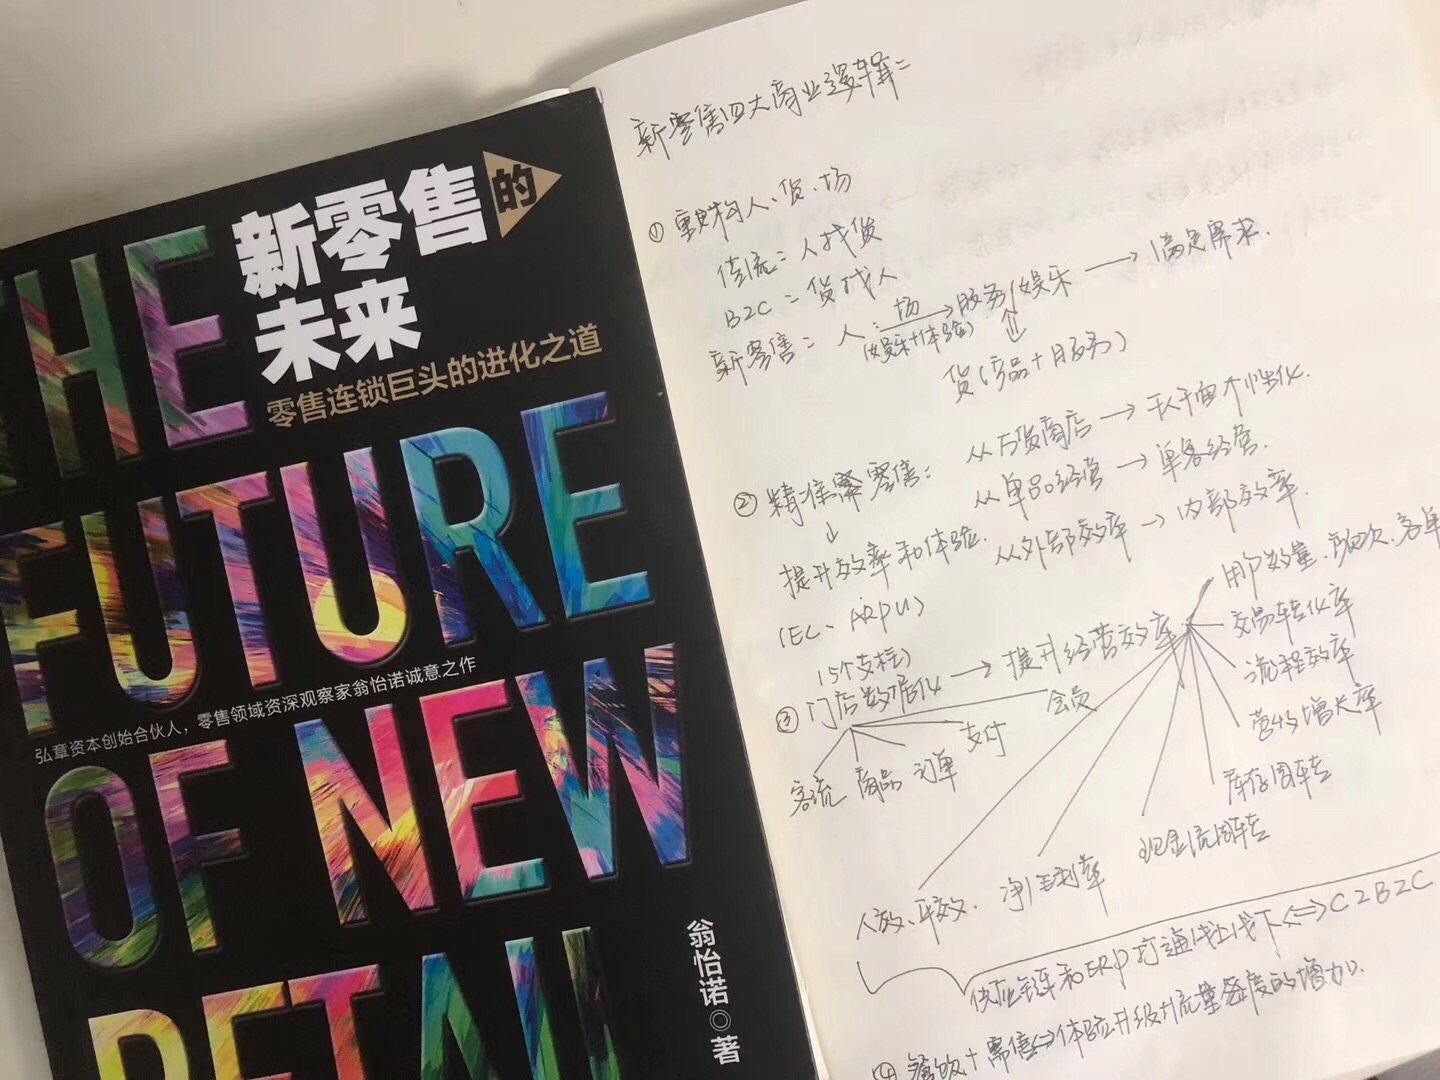 THE
新零售的
未来
零售连锁巨头的进化之道
FUTURE
弘章资本创始合伙人，零售领域资深观察家翁怡诺诚意之作
OF NEW
RETAIL
翁怡诺◎著
新零售四大商业逻辑：
① 重构人、货、场
传统：人找货
B2C：货找人
新零售：人：场（娱乐+体验）→服务/娱乐→满足需求.
⇕
货（产品+服务）
② 精准零售：
从百货商店→千人千面个性化.
从单品经营→单客经营.
从外部效率→内部效率.
↓
提升效率和体验.
（EC、ARPU）
（5个支柱）
③ 门店数据化→提升经营效率
客流
商品
订单
支付
会员
用户数量、频次、客单
交易转化率
流程效率
营收增长率
库存周转
现金流周转
净/毛利率
人效、坪效.
供应链和ERP打通线上线下⇔C2B2C
④ 餐饮+零售⇔体验升级+流量密度的增加.